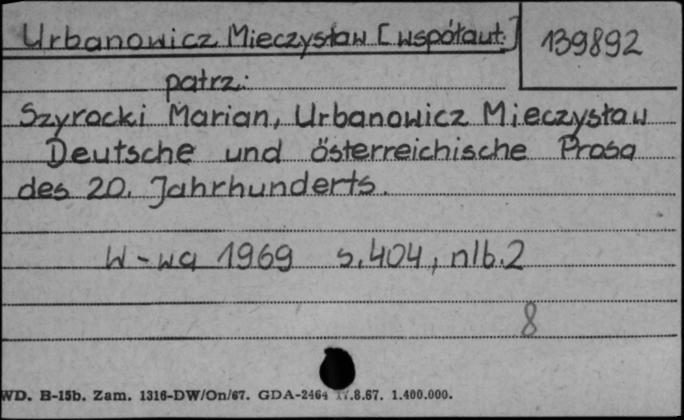 Urbanowicz Mieczysław [współaut.] 139892
patrz:
Szyrocki Marian, Urbanowicz Mieczysław
Deutsche und österreichische Prosa
des 20. Jahrhunderts.
W-wa 1969 s. 404, nlb. 2
8
WD. B-15b. Zam. 1316-DW/On/67. GDA-2464 17.8.67. 1.400.000.